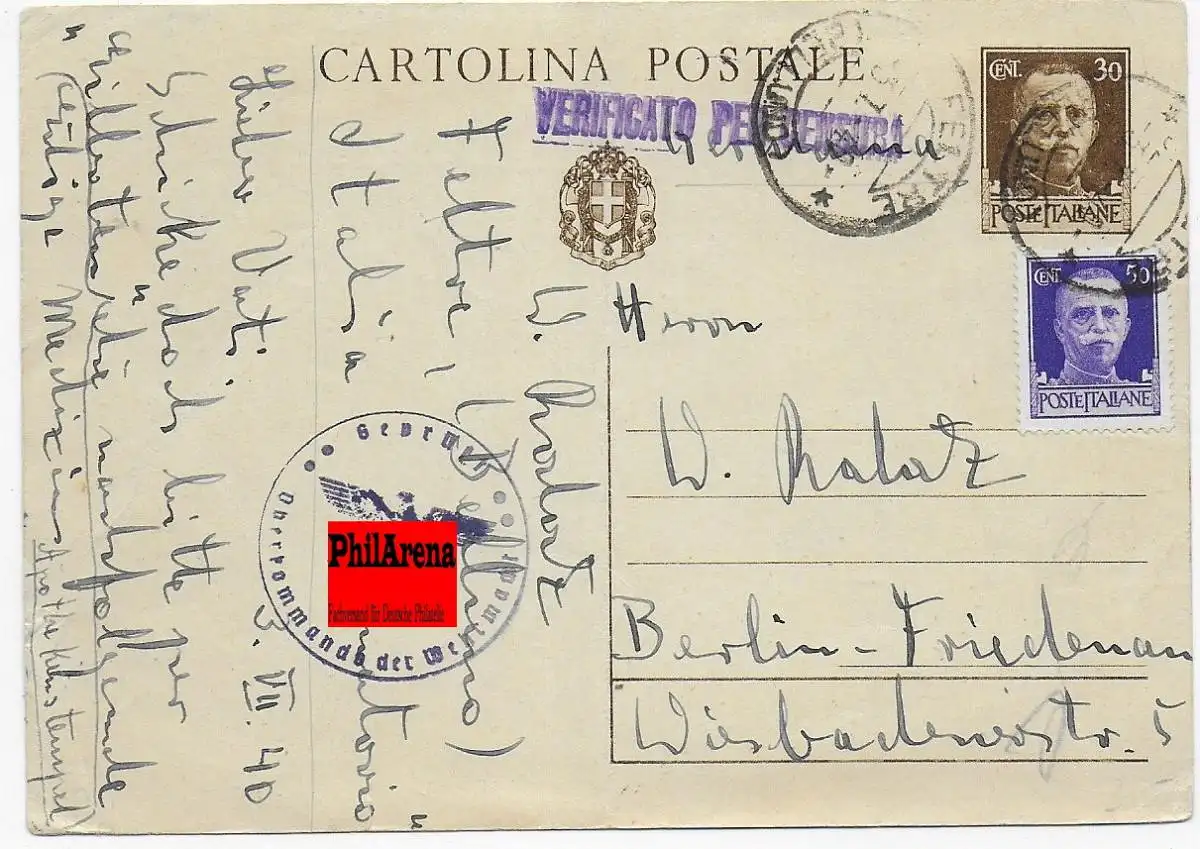 CARTOLINA POSTALE
VERIFICATO PER CENSURA
Germania
FELTRE
CENT. 30
POSTE ITALIANE
CENT. 50
POSTE ITALIANE
Herrn
W. Ralatz
Berlin-Friedenau
Wiesbadenerstr. 5
W. Ralatz
Feltre, (Belluno)
Italia
3. VII. 40
Lieber Vati,
Schicke doch bitte per
nachfolgende
Medizin
Apothekenstempel
Geprüft
Oberkommando der Wehrmacht
PhilArena
Fachversand für Deutsche Philatelie